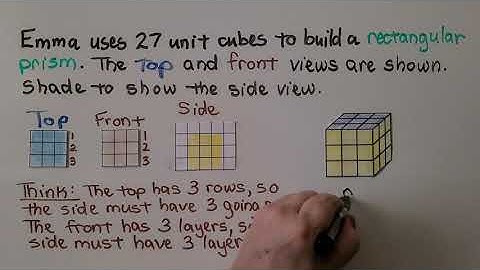 Emma uses 27 unit cubes to build a rectangular
prism. The Top and front views are shown.
Shade to show the side view.
Top Front Side
1 1
2 2
3 3
Think: The top has 3 rows, so
the side must have 3 going
The front has 3 layers,
side must have 3